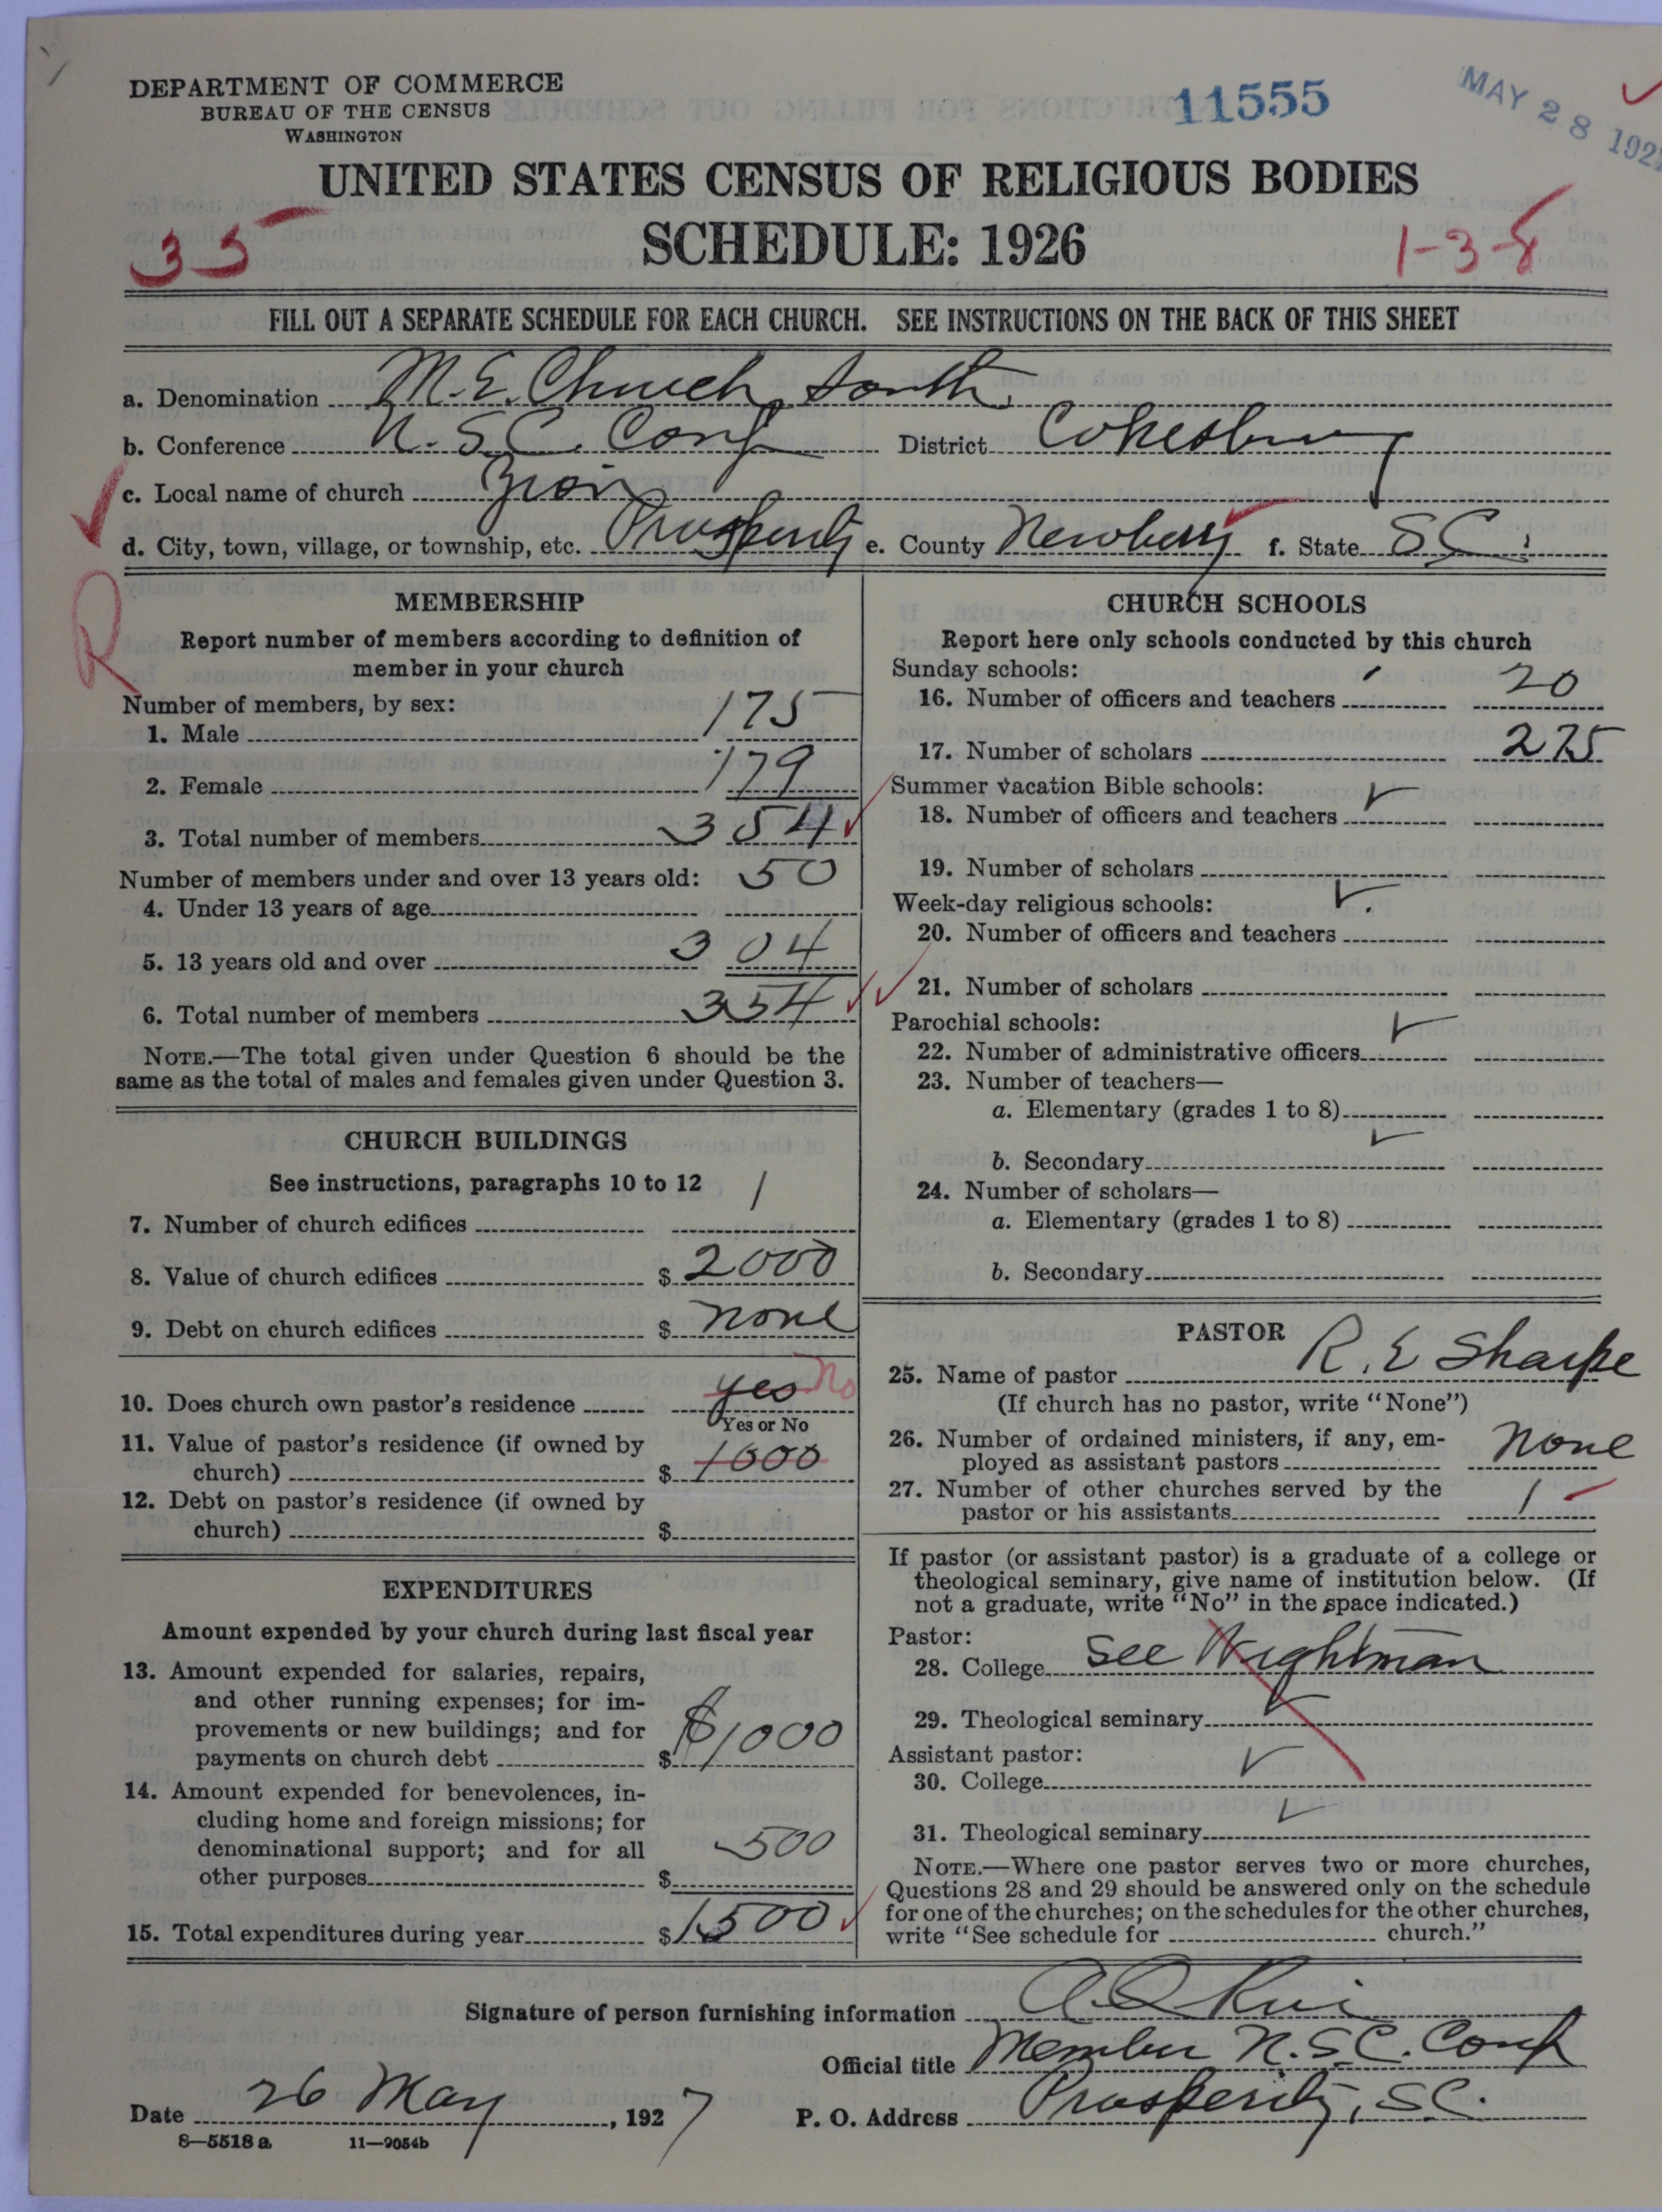 DEPARTMENT OF COMMERCE
BUREAU OF THE CENSUS
WASHINGTON
11555
MAY 28 192
UNITED STATES CENSUS OF RELIGIOUS BODIES
SCHEDULE: 1926
35
1-3-8
FILL OUT A SEPARATE SCHEDULE FOR EACH CHURCH. SEE INSTRUCTIONS ON THE BACK OF THIS SHEET
a. Denomination M.E. Church, South
b. Conference U.S.C. Conf District Cokesbury
c. Local name of church Zion
d. City, town, village, or township, etc. Prosperity e. County Newberry f. State S C.
R
MEMBERSHIP
Report number of members according to definition of
member in your church
Number of members, by sex:
1. Male 175
2. Female 179
3. Total number of members 354
Number of members under and over 13 years old:
4. Under 13 years of age 50
5. 13 years old and over 304
6. Total number of members 354
NOTE.—The total given under Question 6 should be the
same as the total of males and females given under Question 3.
CHURCH BUILDINGS
See instructions, paragraphs 10 to 12
7. Number of church edifices 1
8. Value of church edifices $ 2000
9. Debt on church edifices $ none
10. Does church own pastor's residence yes No
Yes or No
11. Value of pastor's residence (if owned by
church) $ 1000
12. Debt on pastor's residence (if owned by
church) $
EXPENDITURES
Amount expended by your church during last fiscal year
13. Amount expended for salaries, repairs,
and other running expenses; for im-
provements or new buildings; and for
payments on church debt $ $1000
14. Amount expended for benevolences, in-
cluding home and foreign missions; for
denominational support; and for all
other purposes $ 500
15. Total expenditures during year $ 1500
CHURCH SCHOOLS
Report here only schools conducted by this church
Sunday schools:
16. Number of officers and teachers 20
17. Number of scholars 275
Summer vacation Bible schools:
18. Number of officers and teachers
19. Number of scholars
Week-day religious schools:
20. Number of officers and teachers
21. Number of scholars
Parochial schools:
22. Number of administrative officers
23. Number of teachers—
a. Elementary (grades 1 to 8)
b. Secondary
24. Number of scholars—
a. Elementary (grades 1 to 8)
b. Secondary
PASTOR
25. Name of pastor R. E Sharpe
(If church has no pastor, write "None")
26. Number of ordained ministers, if any, em-
ployed as assistant pastors none
27. Number of other churches served by the
pastor or his assistants 1
If pastor (or assistant pastor) is a graduate of a college or
theological seminary, give name of institution below. (If
not a graduate, write "No" in the space indicated.)
Pastor:
28. College See Wightman
29. Theological seminary
Assistant pastor:
30. College
31. Theological seminary
NOTE.—Where one pastor serves two or more churches,
Questions 28 and 29 should be answered only on the schedule
for one of the churches; on the schedules for the other churches,
write "See schedule for church."
Signature of person furnishing information
Official title Member U.S.C. Conf
Date 26 May, 1927 P. O. Address Prosperity, S.C.
8—5518 a 11—9054b